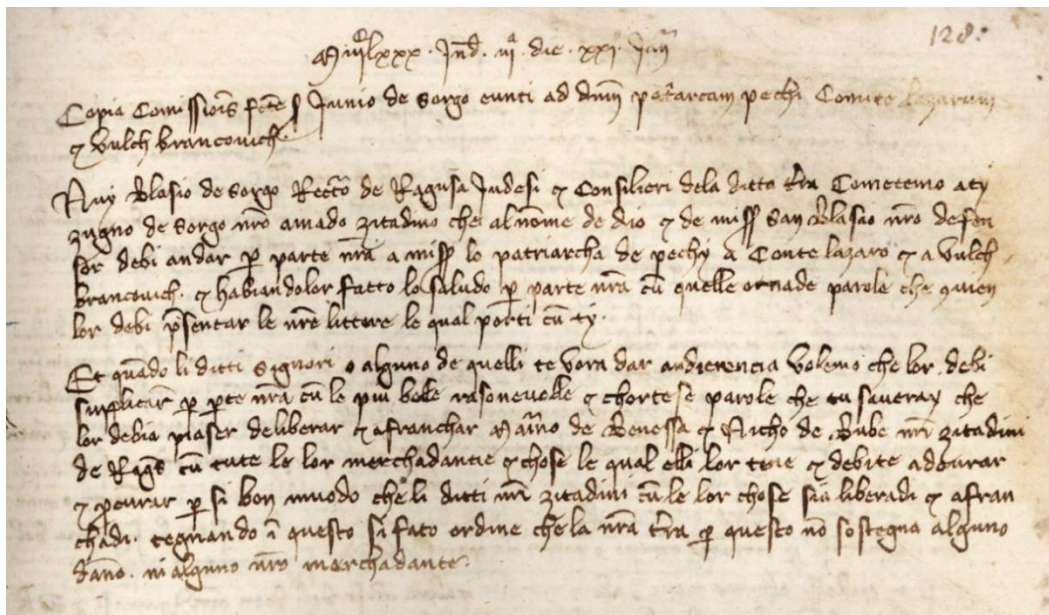 128.
Mͦiijͨlxxx. Ind. iijᵃ. die. xxjͦ. Junij
Copia Comissiois fcte ser Junio de Sorgo eunti ad dnm pat'arcam pechi Comite lazarum
⁊ Vulch brancovich.
Nuy Blasio de Sorgo Rector de Ragusa Judesi ⁊ Consilieri dela ditta t'ra Cometemo aty
zugno de Sorgo nro amado zitadino che al nome de dio ⁊ de miss San Blasio nro defen
sor debi andar p parte nra a miss lo patriarcha de pechy a Conte lazaro ⁊ a Vulch
brancovich. ⁊ habiandolor fatto lo saludo p parte nra cu quelle ornade parole che 9uien
lor debi p'sentar le nre littere le qual porti cu ty.
Et quado li ditti Signori o alguno de quelli te vora dar audiencia volemo che lor debi
suplicar p pte nra cu le piu belle rasonevelle ⁊ chortese parole che tu saveray che
lor debia piaser deliberar ⁊ afranchar Mari'no de Benessa ⁊ Nicho de Bube nri zitadini
de Rags cu tute le lor merchadantie ⁊ chose le qual elli lor tene ⁊ debite adourar
⁊ pcurar p si bon muodo che li ditti nri zitadini cu le lor chose sia liberadi ⁊ afran
chadi. tegnando i questo si fato ordine che la nra t'ra p questo no sostegna alguno
dano. ni alguno nro merchadante.